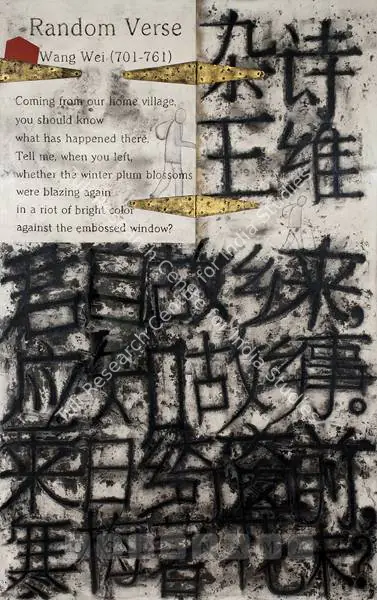 Random Verse
Wang Wei (701-761)
Coming from our home village,
you should know
what has happened there.
Tell me, when you left,
whether the winter plum blossoms
were blazing again
in a riot of bright color
against the embossed window?
杂诗
王维
君自故乡来,
应知故事。
来日绮窗前,
寒梅著花未?
Research Centre for India Studies